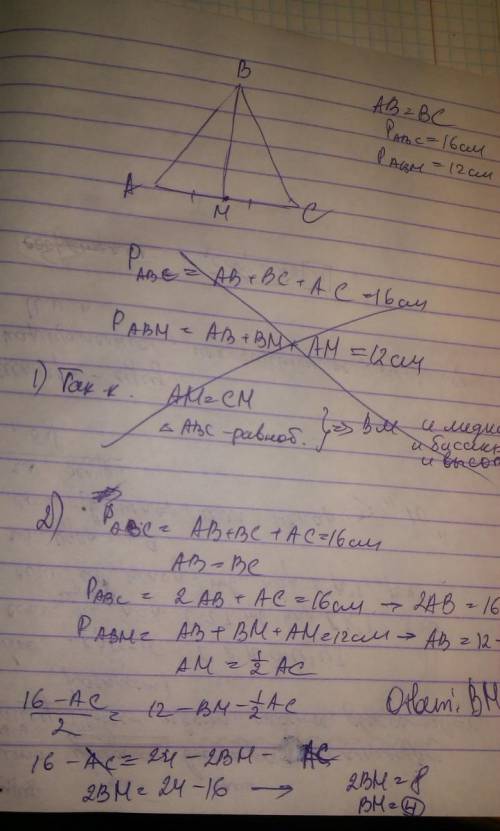 B
A
M
C
AB=BC
P ABC =16см
P ABM =12см
P ABC = AB+BC+AC=16см
P ABM = AB+BM+AM=12см
1) Так к. AM=CM
△ABC-равноб. } => BM и
и
и
2) P ABC = AB+BC+AC=16см
AB=BC
P ABC = 2AB+AC=16см → 2AB=16
P ABM = AB+BM+AM=12см → AB=12-
AM = 1/2 AC
(16-AC)/2 = 12-BM-1/2 AC
Ответ: BM
16-AC=24-2BM-AC
2BM=24-16 → 2BM=8
BM=4